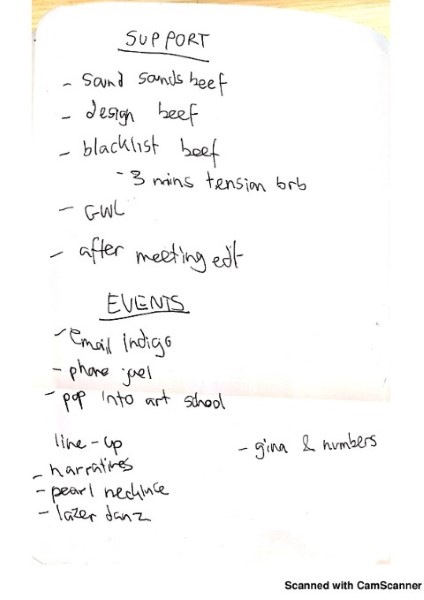 SUPPORT
- sound sands beef
- design beef
- blacklist beef
- 3 mins tension brb
- GWL
- after meeting edit
EVENTS
- Email Indigo
- phone joel
- pop into art school
line-up
- gina & numbers
- narratives
- pearl necklace
- lazer danz
Scanned with CamScanner